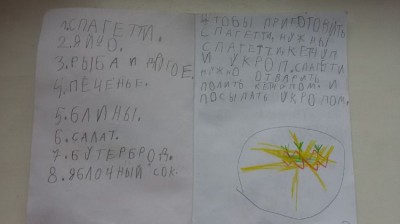 1.СПАГЕТТИ.
2.ЯЙЦО.
3.РЫБА И
4.ПЕЧЕНЬЕ.
5.БЛИНЫ.
6.САЛАТ.
7.БУТЕРБРОД.
8.ЯБЛОЧНЫЙ СОК.
ЧТОБЫ ПРИГОТОВИТЬ
СПАГЕТТИ НУЖНЫ
СПАГЕТТИ, КЕТЧУП
И УКРОП. СПАГЕТИ
НУЖНО ОТВАРИТЬ
ПОЛИТЬ И
ПОСЫПАТЬ УКРОПОМ.